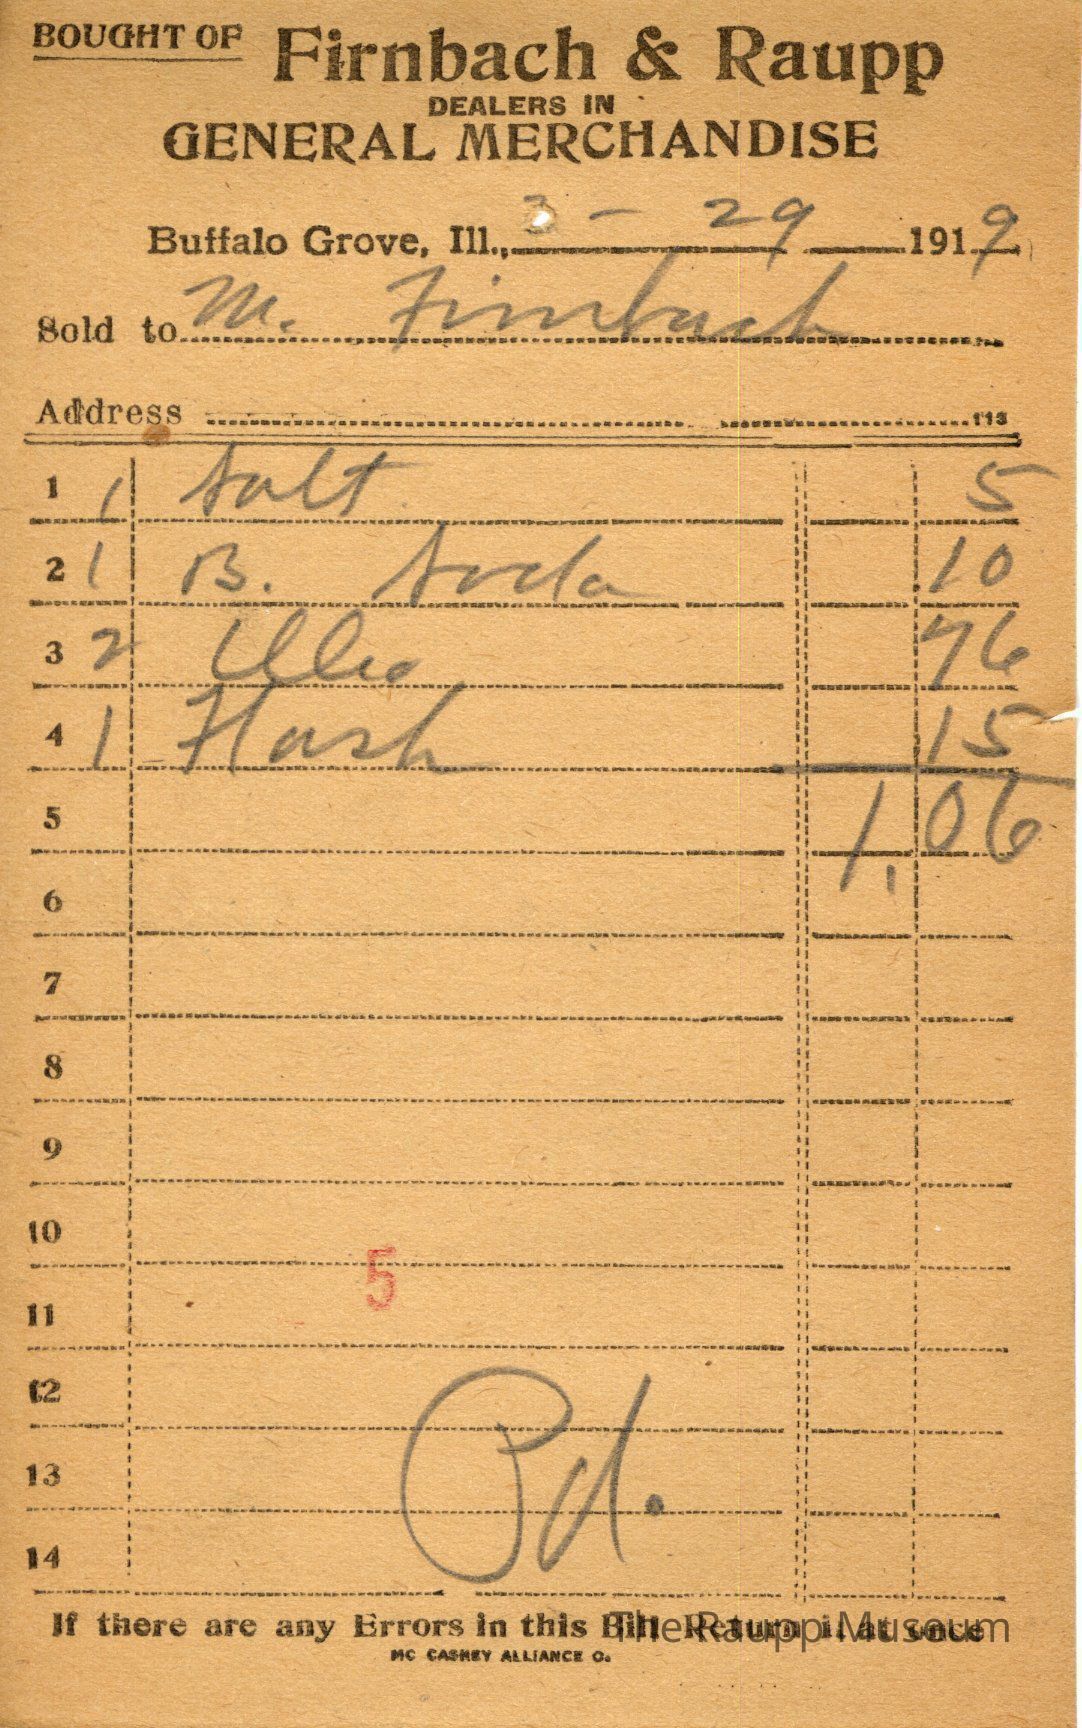 BOUGHT OF Firnbach & Raupp
DEALERS IN
GENERAL MERCHANDISE
Buffalo Grove, Ill., 3 - 29 1919
Sold to M. Firnbach
Address 113
1 1 Salt 5
2 1 B. Soda 10
3 2 76
4 1 Hash 15
5 1.06
6
7
8
9
10
5
11
12
13
Pd.
14
If there are any Errors in this Bill Return it at once
The Raupp Museum
MC CASKEY ALLIANCE O.